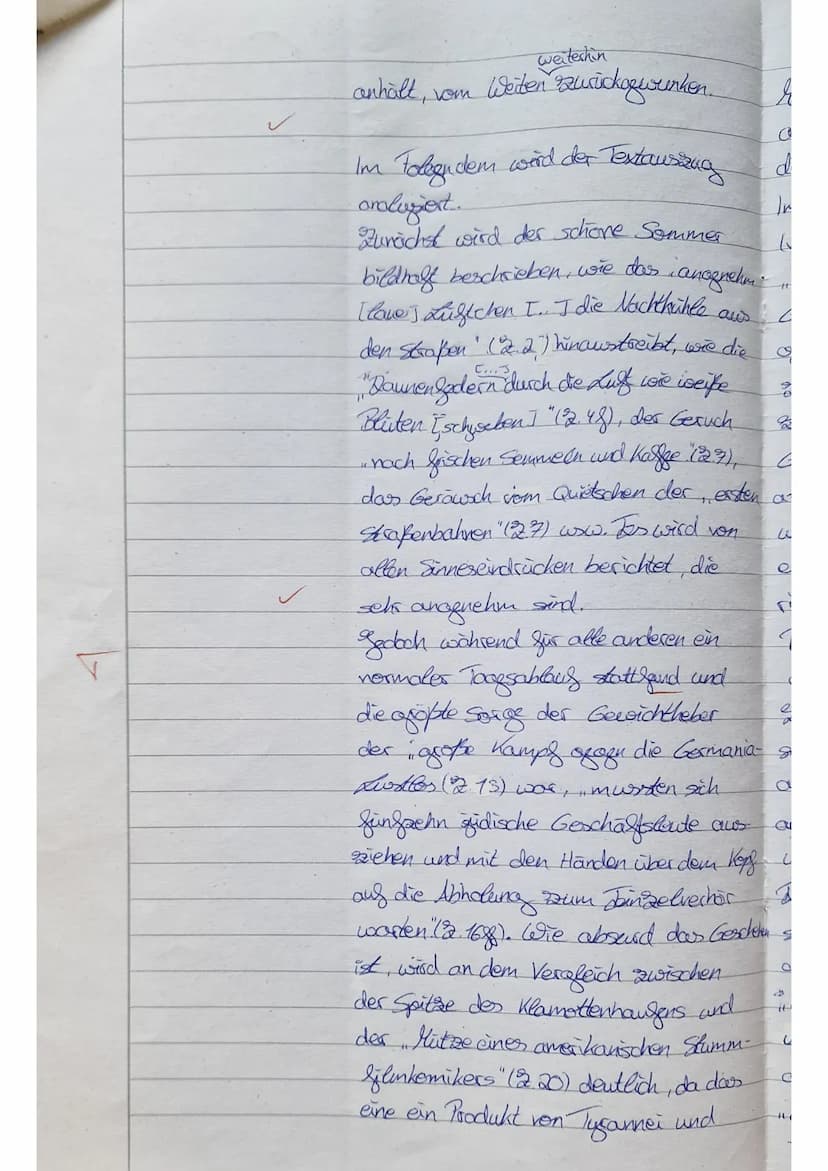 weiterhin
anhält, vom Weiten zurückgewunken.
Im Folegndem wird der Textauszug
analysiert.
Zunächst wird der schöne Sommer
bildhaft beschrieben, wie das „angenehm
[laue] Lüftchen [...] die Nachtkühle aus
den Straßen" (Z.2) hinaustreibt, wie die
[...]
„Daunenfedern durch die Luft wie weiße
Blüten [schweben]" (Z.4f), der Geruch
„nach frischen Semmeln und Kaffee" (Z7),
das Geräusch vom Quietschen der „ersten
Straßenbahnen" (Z7) usw. Es wird von
allen Sinneseindrücken berichtet, die
sehr angenehm sind.
Jedoch während für alle anderen ein
normaler Tagsablauf stattfand und
die größte Sorge der Gewichtheber
der „große Kampf gegen die Germania-
(Z.13) war, „mussten sich
fünfzehn jüdische Geschäftsleute aus-
ziehen und mit den Händen über dem Kopf
auf die Abholung zum Einzelverhör
warten" (Z.16ff). Wie absurd das Geschehen
ist, wird an dem Vergleich zwischen
der Spitze des Klamottenhaufens und
der „Mütze eines amerikanischen Stumm-
filmkomikers" (Z.20) deutlich, da das
eine ein Produkt von Tyrannei und